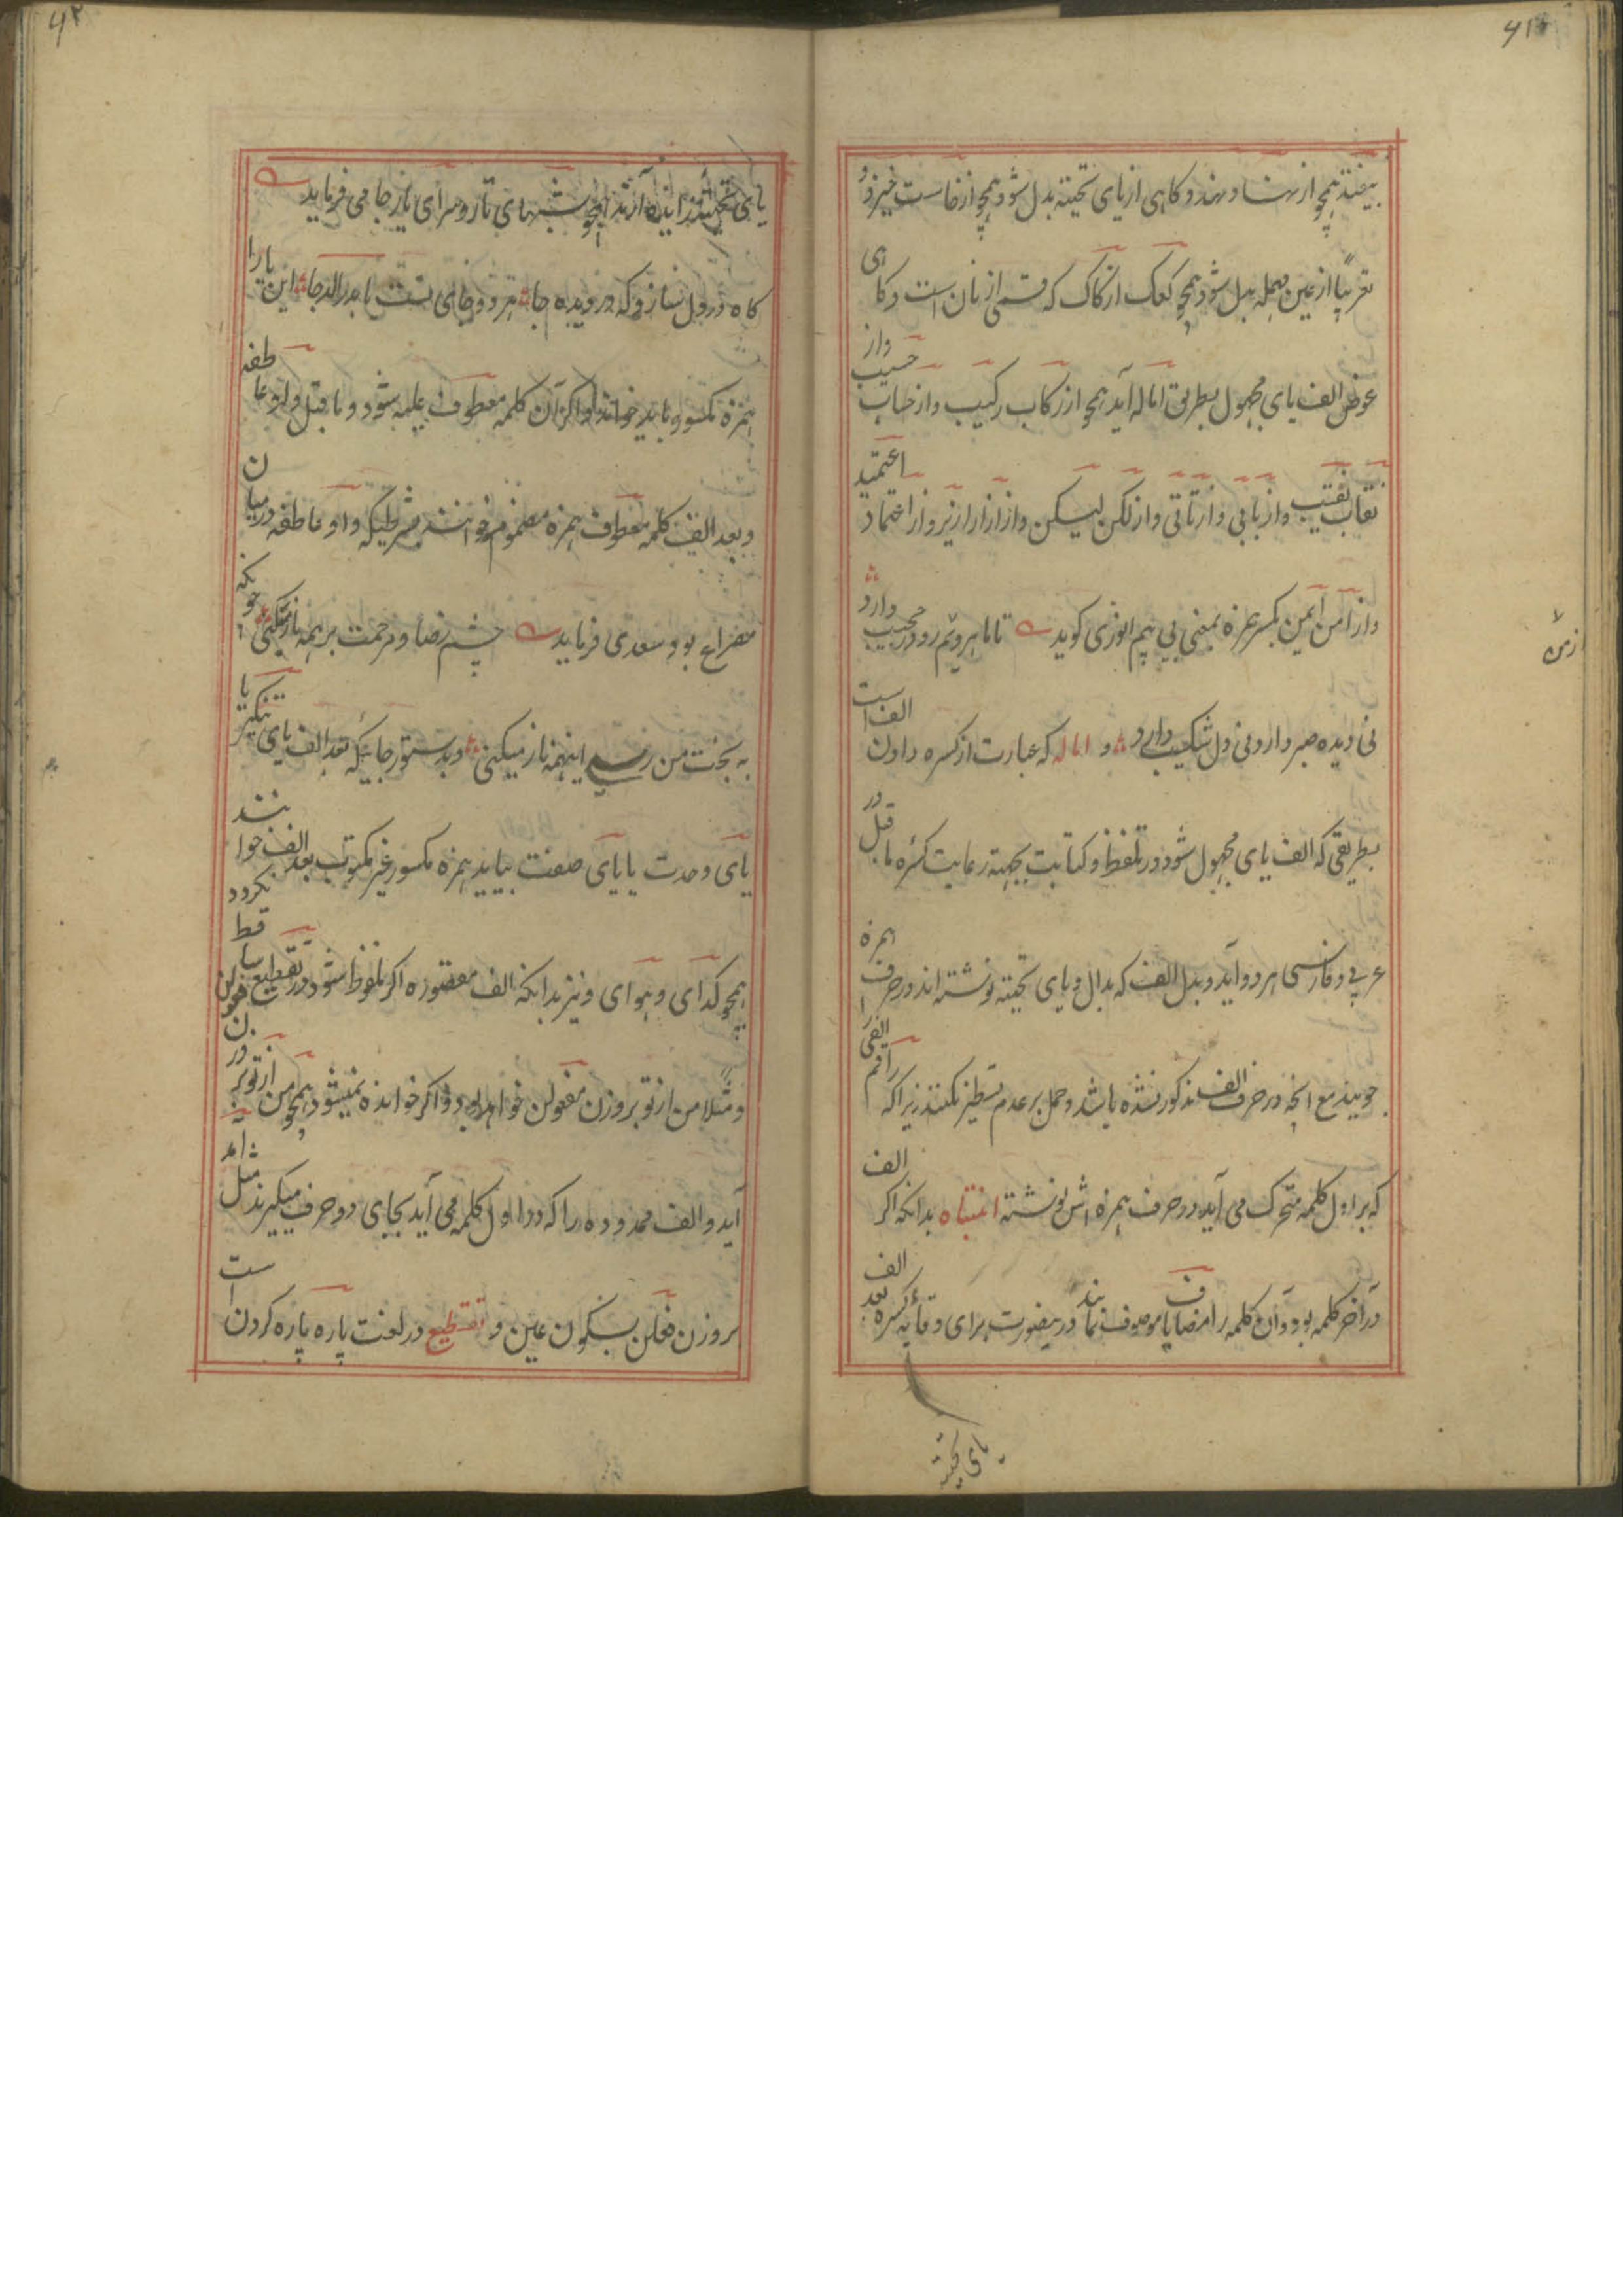 ۶۱
بیفتد همچو ازهند و هند و کاهی از یای تحتیه بدل شود همچو از خاست خیزد و
تعریبًا از عین مهمله بدل شود همچو کعک از کاک که قسمی از نان است و کاهی
عوض الف یای مجهول بطریق اماله آید همچو از رکاب رکیب و از حساب حسیب و از
نقاب نقیب و از تابی و از تاتی و از لکن لیکن و از ازار ازیر و از اعتماد اعتمید
و از امن ایمن بکسر همزه بمعنی بی بیم انوری کوید تا ماهرویم رو در حجیب دارد
نی دیده صبر دارد نی دل شکیب دارد و اماله که عبارت از کسره دادن الف است
بطریقی که الف یای مجهول شود در تلفظ و کتابت بجهته رعایت کسره ما قبل در
عربی و فارسی هر دو آید و بدل الف که بدال و یای تحتیه نوشته اند در حرف همزه
جویند مع انچه در حرف الف مذکور نشده باشد و حمل بر عدم تسطیر نکنند زیرا که راقم الفی
که بر اول کلمه متحرک می آید در حرف همزه اش نوشته انتباه بدانکه اکر الف
در آخر کلمه بود و آن کلمه را مضاف یا موصوف نمایند درینصورت برای وقایه کسره بعد الف
یای تحتیه
ازمن
۶۲
یای تحتیه زایده آرند همچو شبهای تار و سرای یار جامی فرماید
کاه در دل سازد که در دیده جا هر دو جای تست یا بدر الدجا این یا را
همزه مکسوره باید خواند و اکر آن کلمه معطوف علیه شود و ما قبل واو عاطفه
و بعد الف کلمه معطوف همزه مضموم خوانند بشرطیکه واو عاطفه درمیان
مصراع بود سعدی فرماید چشم رضا و مرحمت بر همه باز میکنی چونکه
به بخت من رسی اینهمه ناز میکنی و بدستور جائیکه بعد الف یای تنکیر یا
یای وحدت یا یای صفت بیاید همزه مکسور غیر مکتوب بعد الف خوانند
همچو کدای و هوای و نیز بدانکه الف مقصوره اکر تلفظ شود در تقطیع ساقط نکردد
و مثلا من از تو بروزن مفعولن خواهد بود و اکر خوانده نمیشود همچو من ازتو بر وزن فعولن
آید و الف ممدوده را که در اول کلمه می آید بجای دو حرف میکیرند مثل آمد
بروزن فعلن بسکون عین و تقطیع در لغت پاره پاره کردن است